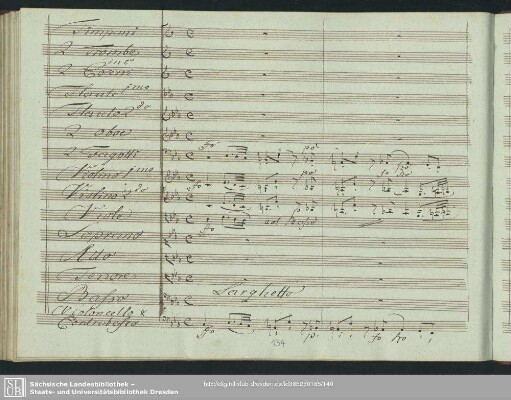 Timpani
2 Trombe
2 Corni
in C
Flauto 1mo
Flauto 2do
2 Oboe
2 Fagotti
Violino 1mo
Violino 2do
Viole
col Basso
Soprano
Alto
Tenore
Basso
Larghetto
Violoncello &
Contrabasso
134
SLUB
Sächsische Landesbibliothek –
Staats- und Universitätsbibliothek Dresden